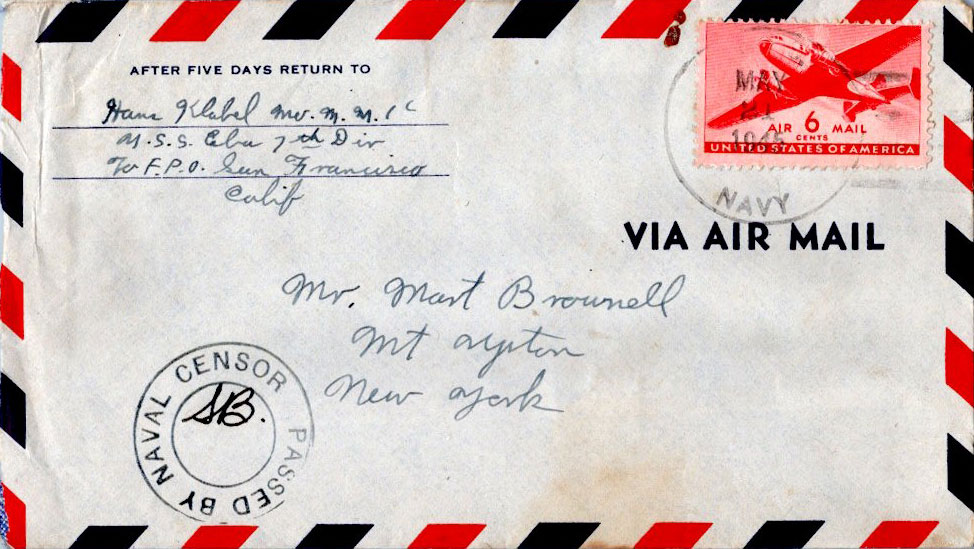 AFTER FIVE DAYS RETURN TO
Hans Klabel Mo. M. M. 1c
U.S.S. Elba 7th Div
To F.P.O. San Francisco
Calif
MAY
1945
NAVY
AIR 6 MAIL
CENTS
UNITED STATES OF AMERICA
VIA AIR MAIL
Mr. Mart Brownell
Mt Upton
New York
PASSED BY NAVAL CENSOR
SB.